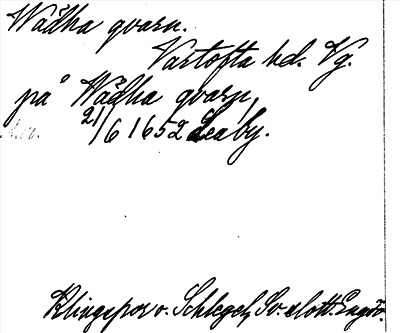 Wådha qvarn.
Vartofta hd. Vg.
på Wådha qvarn,
21/6 1652 Leaby.
Klingspor o. Schlegel, Sv. slott. Engsö.